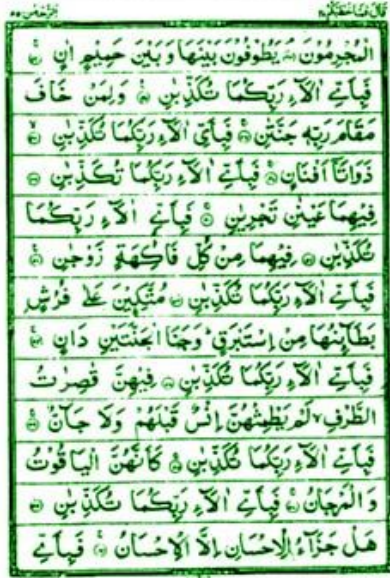 قال فما خطبكم ٢٧ الرحمن ٥٥
الْمُجْرِمُونَ ۘ يَطُوفُونَ بَيْنَهَا وَبَيْنَ حَمِيمٍ اٰنٍ ۚ
فَبِاَيِّ اٰلَآءِ رَبِّكُمَا تُكَذِّبٰنِ ۠ وَلِمَنْ خَافَ
مَقَامَ رَبِّهٖ جَنَّتٰنِ ۚ فَبِاَيِّ اٰلَآءِ رَبِّكُمَا تُكَذِّبٰنِ ۙ
ذَوَاتَآ اَفْنَانٍ ۚ فَبِاَيِّ اٰلَآءِ رَبِّكُمَا تُكَذِّبٰنِ
فِيْهِمَا عَيْنٰنِ تَجْرِيٰنِ ۚ فَبِاَيِّ اٰلَآءِ رَبِّكُمَا
تُكَذِّبٰنِ فِيْهِمَا مِنْ كُلِّ فَاكِهَةٍ زَوْجٰنِ ۚ
فَبِاَيِّ اٰلَآءِ رَبِّكُمَا تُكَذِّبٰنِ مُتَّكِـِٕيْنَ عَلٰى فُرُشٍۭ
بَطَآىِٕنُهَا مِنْ اِسْتَبْرَقٍ ؕ وَجَنَا الْجَنَّتَيْنِ دَانٍ ۚ
فَبِاَيِّ اٰلَآءِ رَبِّكُمَا تُكَذِّبٰنِ فِيْهِنَّ قٰصِرٰتُ
الطَّرْفِ ۙ لَمْ يَطْمِثْهُنَّ اِنْسٌ قَبْلَهُمْ وَلَا جَآنٌّ ۚ
فَبِاَيِّ اٰلَآءِ رَبِّكُمَا تُكَذِّبٰنِ ۚ كَاَنَّهُنَّ الْيَاقُوْتُ
وَالْمَرْجَانُ ۚ فَبِاَيِّ اٰلَآءِ رَبِّكُمَا تُكَذِّبٰنِ
هَلْ جَزَآءُ الْاِحْسَانِ اِلَّا الْاِحْسَانُ ۚ فَبِاَيِّ